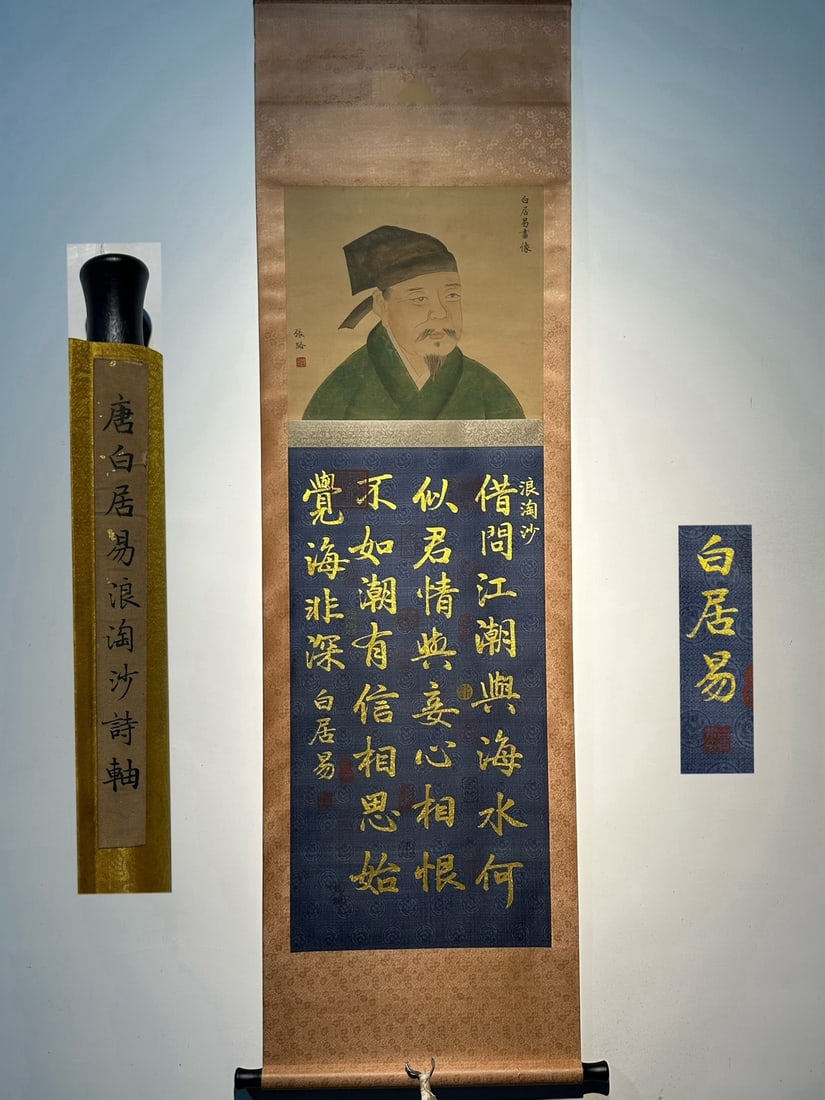 白居易畫像
張路
浪淘沙
借問江潮與海水何
似君情與妾心相恨
不如潮有信相思始
覺海非深
白居易
唐白居易浪淘沙詩軸
白居易